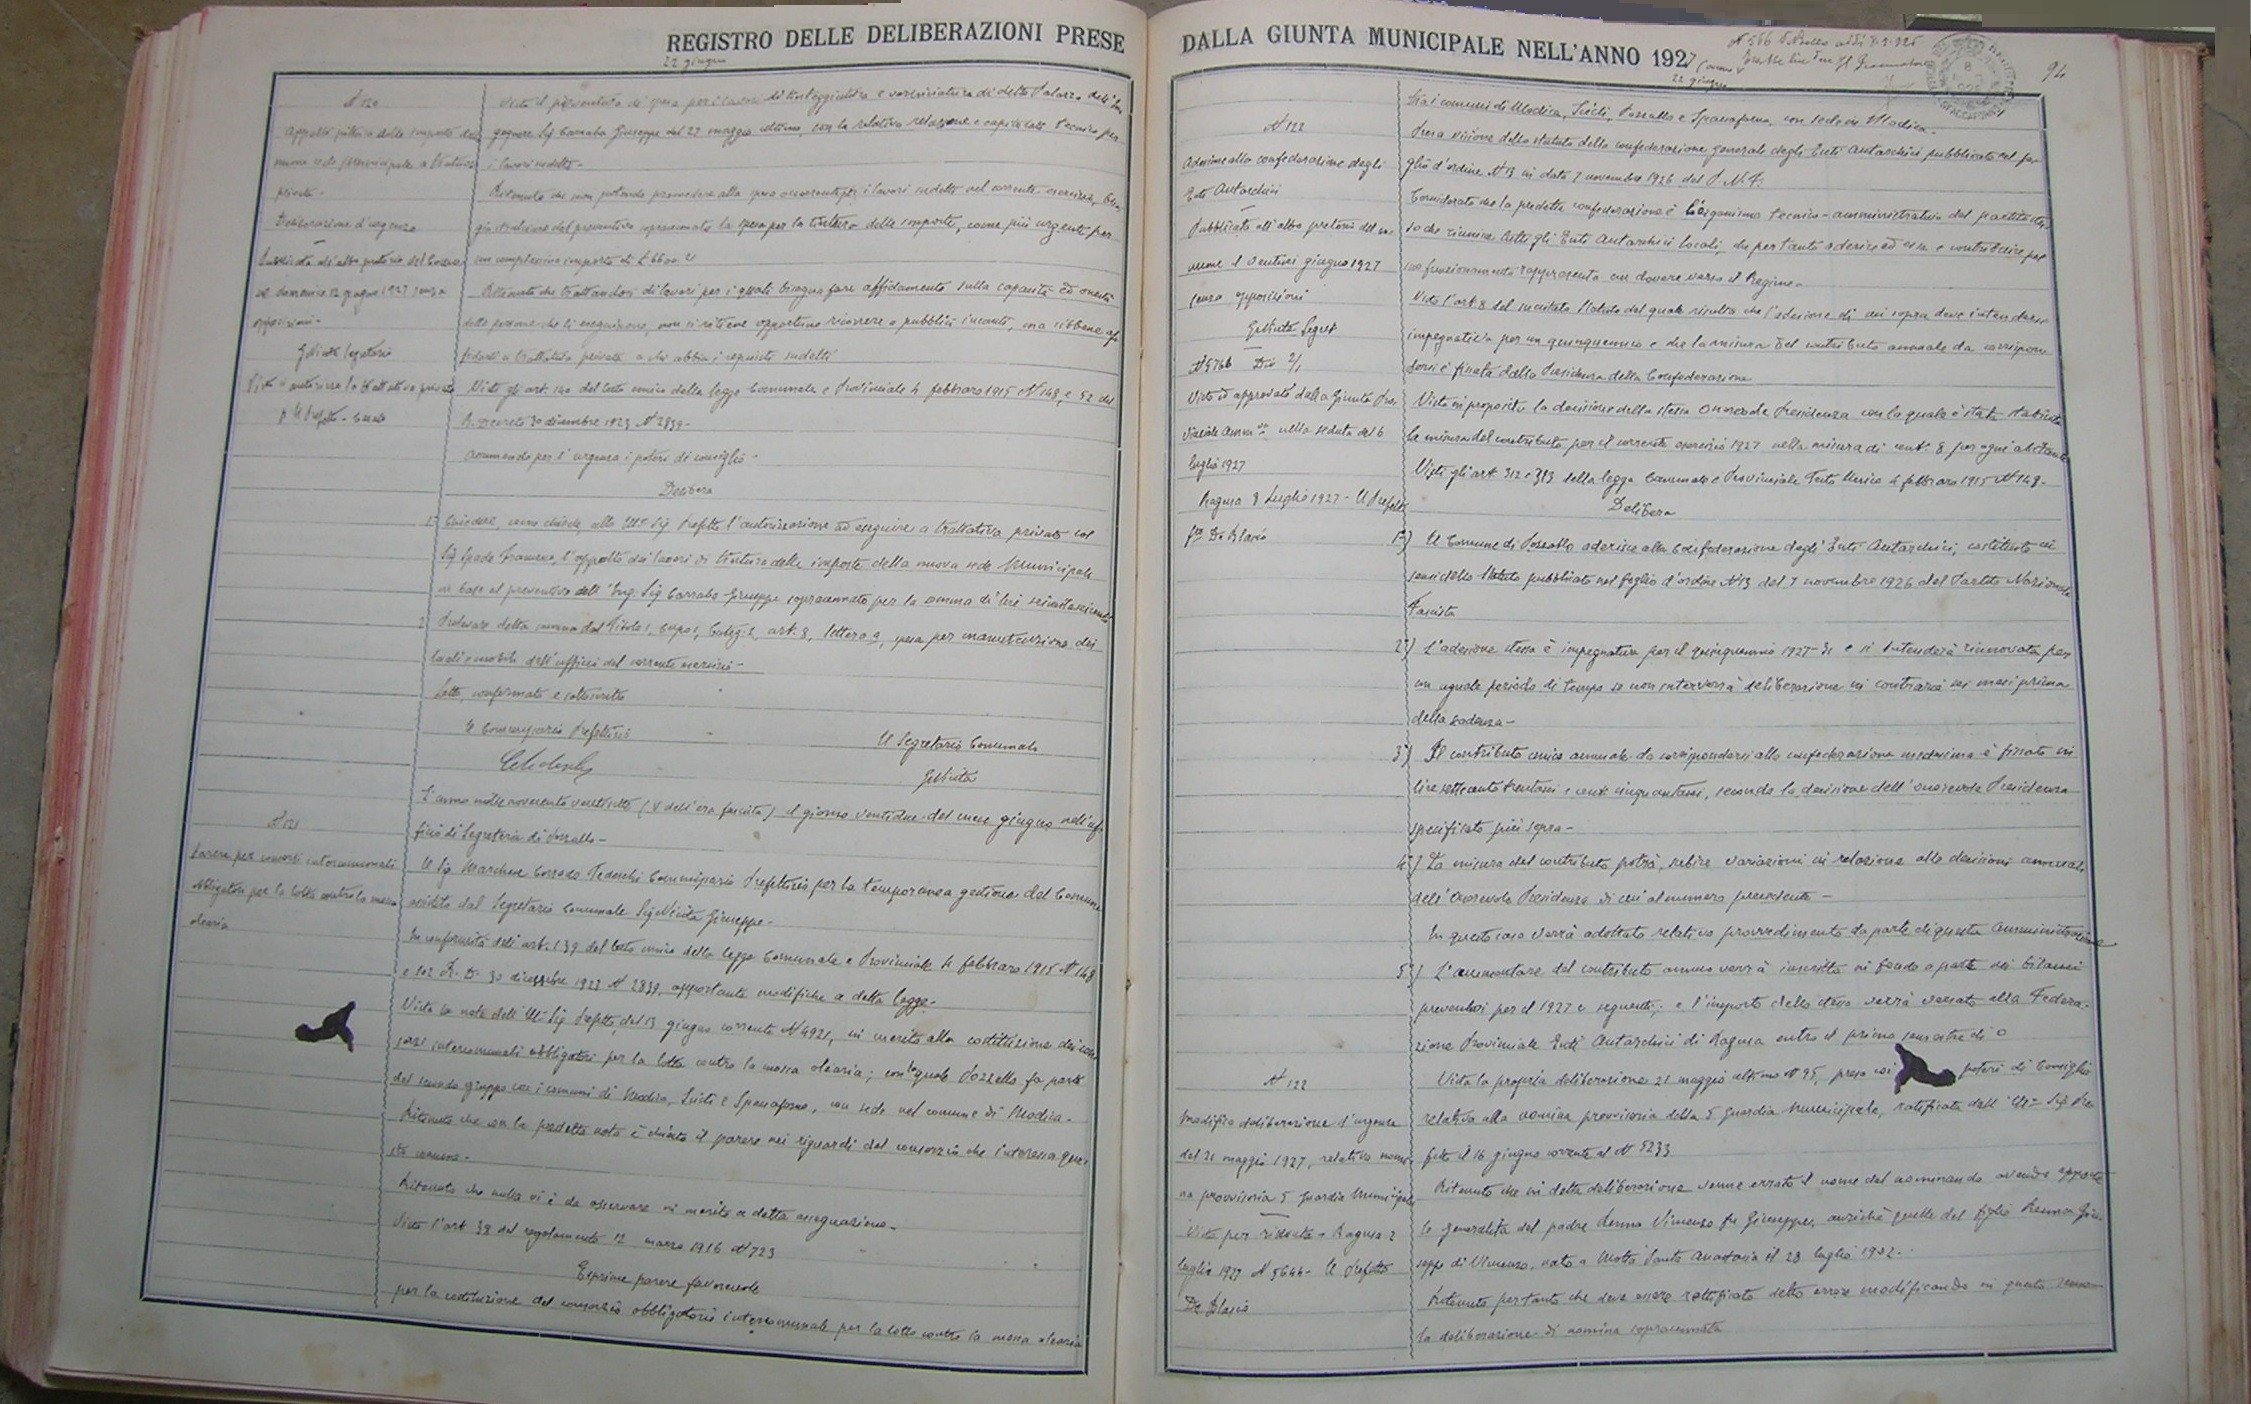 REGISTRO DELLE DELIBERAZIONI PRESE
22 giugno
N 120
Appalto pubblico delle imposte della
nuova sede municipale a trattativa
privata-
Deliberazione d'urgenza
Pubblicata all'albo pretorio del Comune
domenica 12 giugno 1927 senza
opposizioni-
GNicita Segretario
Visto si autorizza la trattativa privata
p. Il Prefetto -
Visto il preventivo di spesa per i lavori di tinteggiatura e verniciatura di detto Palazzo dell'In
gegnere Sig Carrabo Giuseppe del 27 maggio ultimo, con la relativa relazione e capitolato tecnico per
i lavori suddetti-
Ritenuto che non potendo provvedere alla spesa occorrente per i lavori suddetti nel corrente esercizio,
già stralciare del preventivo soprascennato la spesa per la tintura delle imposte, come più urgente per
un complessivo importo di £ 6600
Ritenuto che trattandosi di lavori per i quali bisogna fare affidamento sulla capacità ed onestà
delle persone che li eseguiranno, non si ritiene opportuno ricorrere a pubblici incanti, ma sibbene af
fidarli a trattativa privata a chi abbia i requisiti suddetti
Visto gli art. 140 del testo unico della legge Comunale e Provinciale 4 febbraio 1915 N 148, e 52 del
R. Decreto 30 dicembre 1923 N 2839-
Assumendo per l'urgenza i poteri di consiglio-
Delibera
1° Chiedere, come chiede, allo Ill.mo Sig Prefetto l'autorizzazione ad eseguire a trattativa privata col
Sig Spada Francesco, l'appalto dei lavori di tintura delle imposte della nuova sede Municipale
in base al preventivo dell'Ing. Sig Carrabo Giuseppe sopracennato per la somma di lire seimilaseicento
2 Prelevare detta somma dal Titolo 1, Capo 1, Categ. 2, art. 8, lettera a, spesa per manutenzione dei
locali e mobili dell'ufficio del corrente esercizio-
Letto, confermato e sottoscritto
Il Commissario Prefettizio
Il Segretario Comunale
GNicita
N 121
Parere per consorzi intercomunali
obbligatori per la lotta contro la mosca
olearia
L'anno millenovecento ventisette (V dell'era fascista) il giorno ventidue del mese giugno nell'uf
ficio di Segreteria di Pozzallo-
Il Sig Marchese Corrado Tedeschi Commissario Prefettizio per la temporanea gestione del Comune
assistito dal Segretario Comunale Sig Nicita Giuseppe-
In conformità dell'art. 139 del testo unico della legge Comunale e Provinciale 4 febbraio 1915 N 148
e 102 R. D. 30 dicembre 1923 N 2839, apportante modifiche a detta legge-
Vista la nota dell'Ill.mo Sig Prefetto, del 13 giugno corrente N 4921, in merito alla costituzione dei con
sorzi intercomunali obbligatori per la lotta contro la mosca olearia; con la quale Pozzallo fa parte
del secondo gruppo con i comuni di Modica, Scicli e Spaccaforno, con sede nel comune di Modica-
Ritenuto che con la predetta nota è chiesto il parere nei riguardi del consorzio che interessa que-
sto comune-
Ritenuto che nulla vi è da osservare in merito a detta assegnazione-
Visto l'art 38 del regolamento 12 marzo 1916 N 723
Esprime parere favorevole
per la costituzione del consorzio obbligatorio intercomunale per la lotta contro la mosca olearia
DALLA GIUNTA MUNICIPALE NELL'ANNO 1927
22 giugno
94
tra i comuni di Modica, Scicli, Pozzallo e Spaccaforno, con sede in Modica-
N 122
Adesione alla confederazione degli
Enti Autarchici
Pubblicata all'albo pretorio del co-
mune il ventisei giugno 1927
senza opposizioni
GNicita Segret
N 5766 Div 2/1
Visto ed approvato dalla Giunta Pro-
vinciale Amm.va nella seduta del 6
luglio 1927
Ragusa 8 Luglio 1927 - Il Prefetto
fto De Blasio
Presa visione dello statuto della confederazione generale degli Enti Autarchici pubblicato nel fo-
glio d'ordine N 13 in data 7 novembre 1926 del P.N.F.
Considerato che la predetta confederazione è l'organismo tecnico-amministrativo del partito stes
so che riunisce tutti gli Enti Autarchici locali, che pertanto aderire ad essa e contribuire pel
suo funzionamento rappresenta un dovere verso il Regime-
Visto l'art. 8 del succitato Statuto dal quale risulta che l'adesione di cui sopra deve intendersi
impegnativa per un quinquennio e che la misura del contributo annuale da corrispon
dersi è fissata dalla Presidenza della Confederazione
Vista in proposito la decisione della stessa Onorevole Presidenza con la quale è stata stabilita
la misura del contributo per il corrente esercizio 1927 nella misura di cent. 8 per ogni abitante
Visti gli art. 312 e 313 della legge Comunale e Provinciale Testo Unico 4 febbraio 1915 N 148-
Delibera
1°) Il Comune di Pozzallo aderisce alla Confederazione degli Enti Autarchici, costituita ai
sensi dello Statuto pubblicato nel foglio d'ordine N 13 del 7 novembre 1926 del Partito Nazionale
Fascista
2°) L'adesione stessa è impegnativa per il quinquennio 1927-31 e si intenderà rinnovata per
un uguale periodo di tempo se non interverrà deliberazione in contrario sei mesi prima
della scadenza-
3°) Il contributo unico annuale da corrispondersi alla confederazione medesima è fissato in
lire settecento trentasei e cent. cinquantasei, secondo la decisione dell'onorevole Presidenza
specificata più sopra-
4°) La misura del contributo potrà subire variazioni in relazione alle decisioni annuali
dell'Onorevole Presidenza di cui al numero precedente-
In questo caso verrà adottato relativo provvedimento da parte di questa Amministrazione
5°) L'ammontare del contributo annuo verrà inscritto in fondo a parte nei bilanci
preventivi per il 1927 e seguenti; e l'importo dello stesso verrà versato alla Federa-
zione Provinciale Enti Autarchici di Ragusa entro il primo semestre di
N 122
Modifica deliberazione d'urgenza
del 21 maggio 1927, relativa nomi-
na provvisoria 5 guardia Municipale
Visto per ricevuta - Ragusa 2
luglio 1927 N 5646 - Il Prefetto
De Blasio
Vista la propria deliberazione 21 maggio ultimo N 95, presa coi poteri di Consiglio
relativa alla nomina provvisoria della 5 guardia Municipale, ratificata dall'Ill.mo Sig Pre
fetto il 16 giugno corrente al N 5233
Ritenuto che in detta deliberazione venne errato il nome del nominando avendo apposto
le generalità del padre Renna Vincenzo fu Giuseppe, anzichè quelle del figlio Renna Giu
seppe di Vincenzo, nato a Motta Santa Anastasia il 28 luglio 1902-
Ritenuto pertanto che deve essere rettificato detto errore modificando in questo senso
la deliberazione di nomina sopracennata